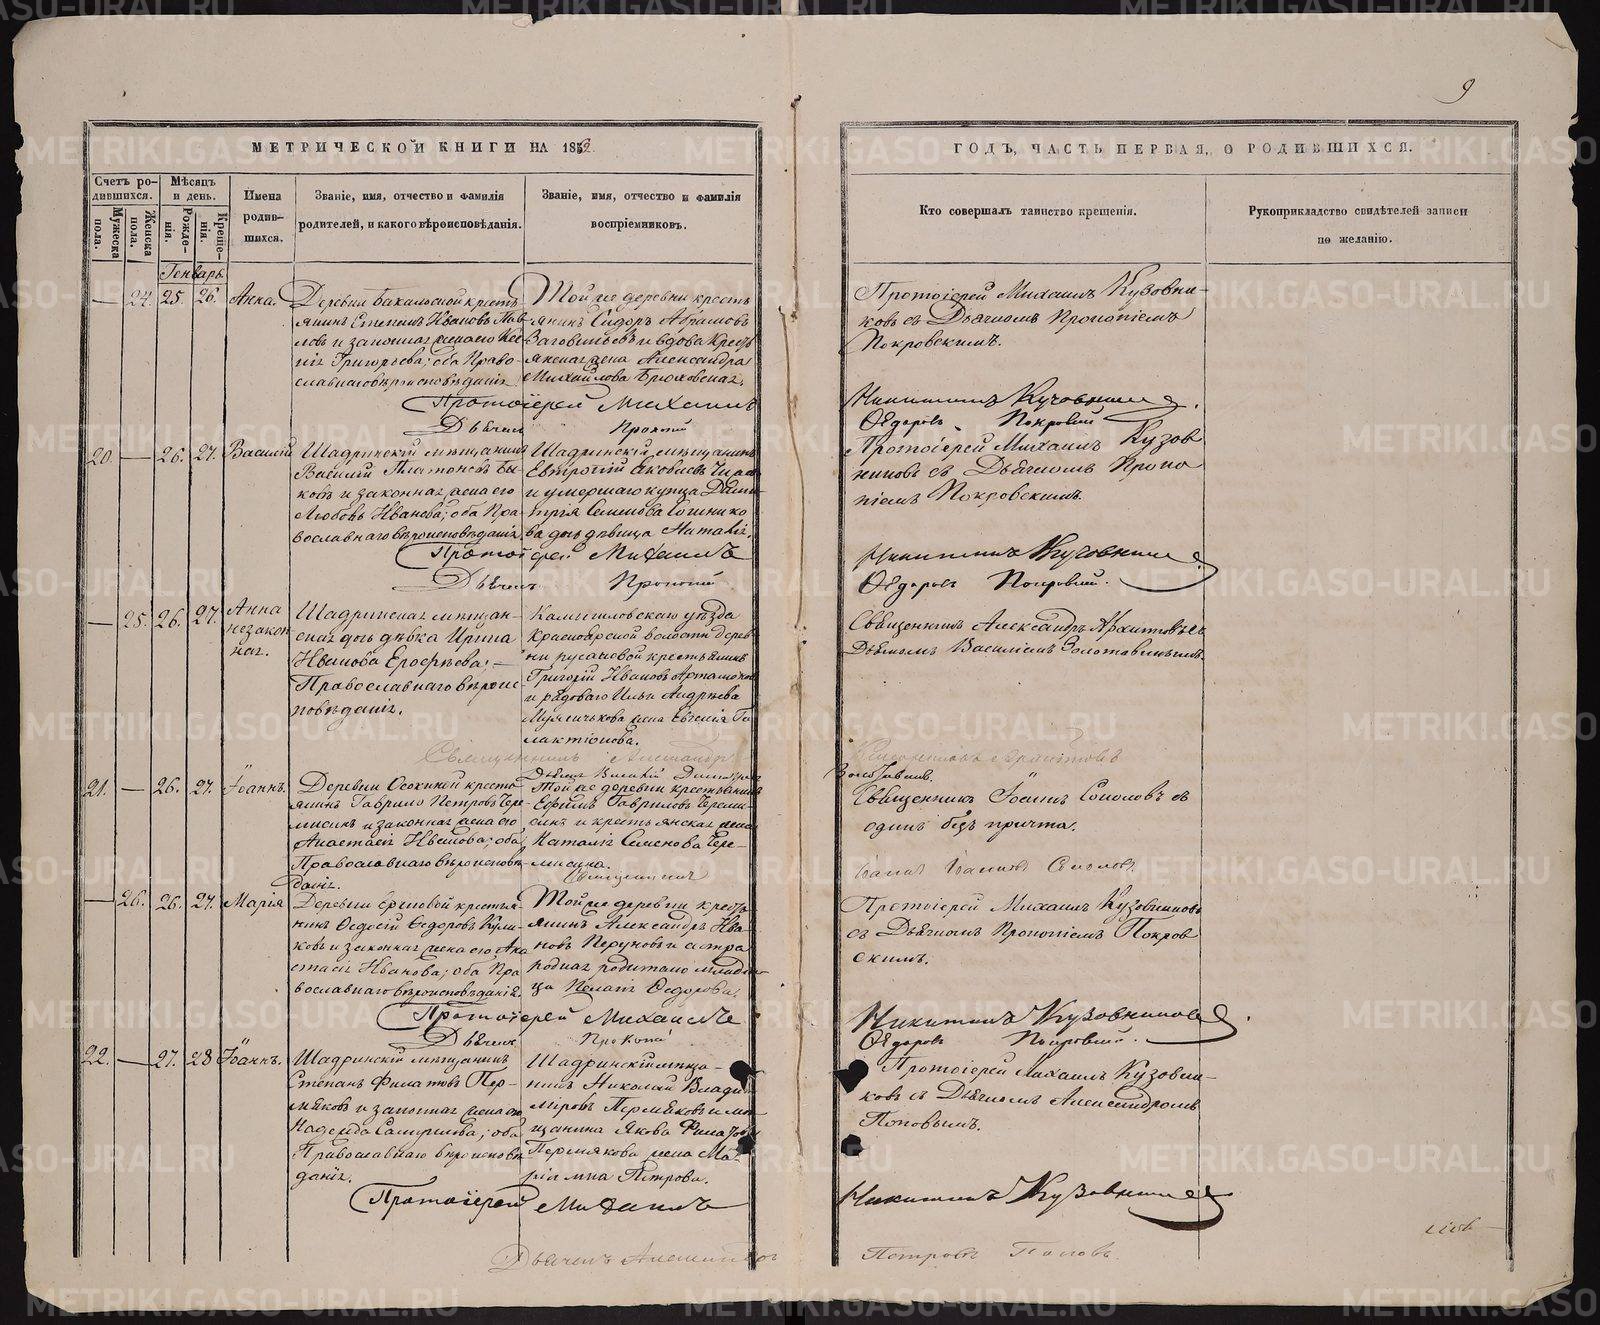 9
МЕТРИЧЕСКОЙ КНИГИ НА 1859
ГОДЪ, ЧАСТЬ ПЕРВАЯ, О РОДИВШИХСЯ.
Счетъ ро-
дившихся.
Мужеска
пола.
Женска
пола.
Мѣсяцъ
и день.
Рожде-
нія.
Креще-
нія.
Имена
родив-
шихся.
Званіе, имя, отчество и фамилія
родителей, и какого вѣроисповѣданія.
Званіе, имя, отчество и фамилія
воспріемниковъ.
Кто совершалъ таинство крещенія.
Рукоприкладство свидѣтелей записи
по желанію.
Генварь
— 24. 25. 26. Анна.
Деревни Бакальской кресть
янинъ Степанъ Ивановъ Пав
ловъ и законная жена его
Григорьева; оба Право-
славнаго вѣроисповѣданія
Той же деревни кресть
янинъ Сидоръ Абрамовъ
и вдова Кресть
янская жена Александра
Михайлова Брюховская.
Протоіерей Михаилъ Кузовни-
ковъ съ Дьячкомъ Прокопіемъ
Покровскимъ.
Протоіерей Михаилъ
Никитинъ Кузовниковъ.
Дьячекъ Прокопій
Ѳедоровъ Покровскій
20. — 26. 27. Василій
Шадринскій мѣщанинъ
Василій Платоновъ Бы-
ковъ и законная жена его
Любовь Иванова; оба Пра-
вославнаго вѣроисповѣданія
Шадринскій мѣщанинъ
Евтропій Яковлевъ
и умершаго купца Дими-
трія Семенова
ва дочь дѣвица Наталія.
Протоіерей Михаилъ Кузов
никовъ съ Дьячкомъ Проко
піемъ Покровскимъ.
Протоіерей Михаилъ
Никитинъ Кузовниковъ
Дьячекъ Прокопій
Ѳедоровъ Покровскій.
— 25. 26. 27. Анна
незакон
ная.
Шадринская мѣщан-
ская дочь дѣвка Ирина
Иванова Ерофѣева; —
Православнаго вѣроис-
повѣданія.
Камышловскаго уѣзда
Красноярской волости дерев
ни Русаковой крестьянинъ
Григорій Ивановъ
и рядоваго Ильи Андрѣева
жена Евгенія Га-
лактіонова.
Священникъ Александръ съ
Дьячкомъ Василіемъ Золотавинымъ.
Священникъ Александръ
Дьячекъ Василій
Золотавинъ.
21. — 26. 27. Іоаннъ.
Деревни Осохиной кресть
янинъ Гаврило Петровъ Чере-
мисинъ и законная жена его
Анастасія Иванова; оба
Православнаго вѣроисповѣ-
данія.
Той же деревни крестьянинъ
Ефимъ Гавриловъ Череми-
синъ и крестьянская жена
Наталія Семенова Чере-
мисина.
Священникъ Іоаннъ Соколовъ съ
одинъ безъ причта.
Священникъ
Іоаннъ Іоанновъ Соколовъ
— 26. 26. 27. Марія
Деревни крестья-
нинъ Ѳедосій Ѳедоровъ Кули-
ковъ и законная жена его Ана
стасія Иванова; оба Пра
вославнаго вѣроисповѣданія.
Той же деревни кресть-
янинъ Александръ Ива
новъ Перуновъ и сестра
родная родителю младен-
ца Пелагія Ѳедорова.
Протоіерей Михаилъ Кузовниковъ
съ Дьячкомъ Прокопіемъ Покров
скимъ.
Протоіерей Михаилъ
Никитинъ Кузовниковъ.
Дьячекъ Прокопій
Ѳедоровъ Покровскій.
22. — 27. 28 Іоаннъ.
Шадринскій мѣщанинъ
Степанъ Филатовъ Пер-
мяковъ и законная жена его
Надежда; оба
Православнаго вѣроисповѣ
данія.
Шадринскій мѣща-
нинъ Николай Влади-
міровъ Пермяковъ и мѣ-
щанина Якова Филатова
Пермякова жена Ма-
рія Петрова.
Протоіерей Михаилъ Кузовни-
ковъ съ Дьячкомъ Александромъ
Поповымъ.
Протоіерей Михаилъ
Никитинъ Кузовниковъ
Дьячекъ Александръ
Петровъ Поповъ.
METRIKI.GASO-URAL.RU